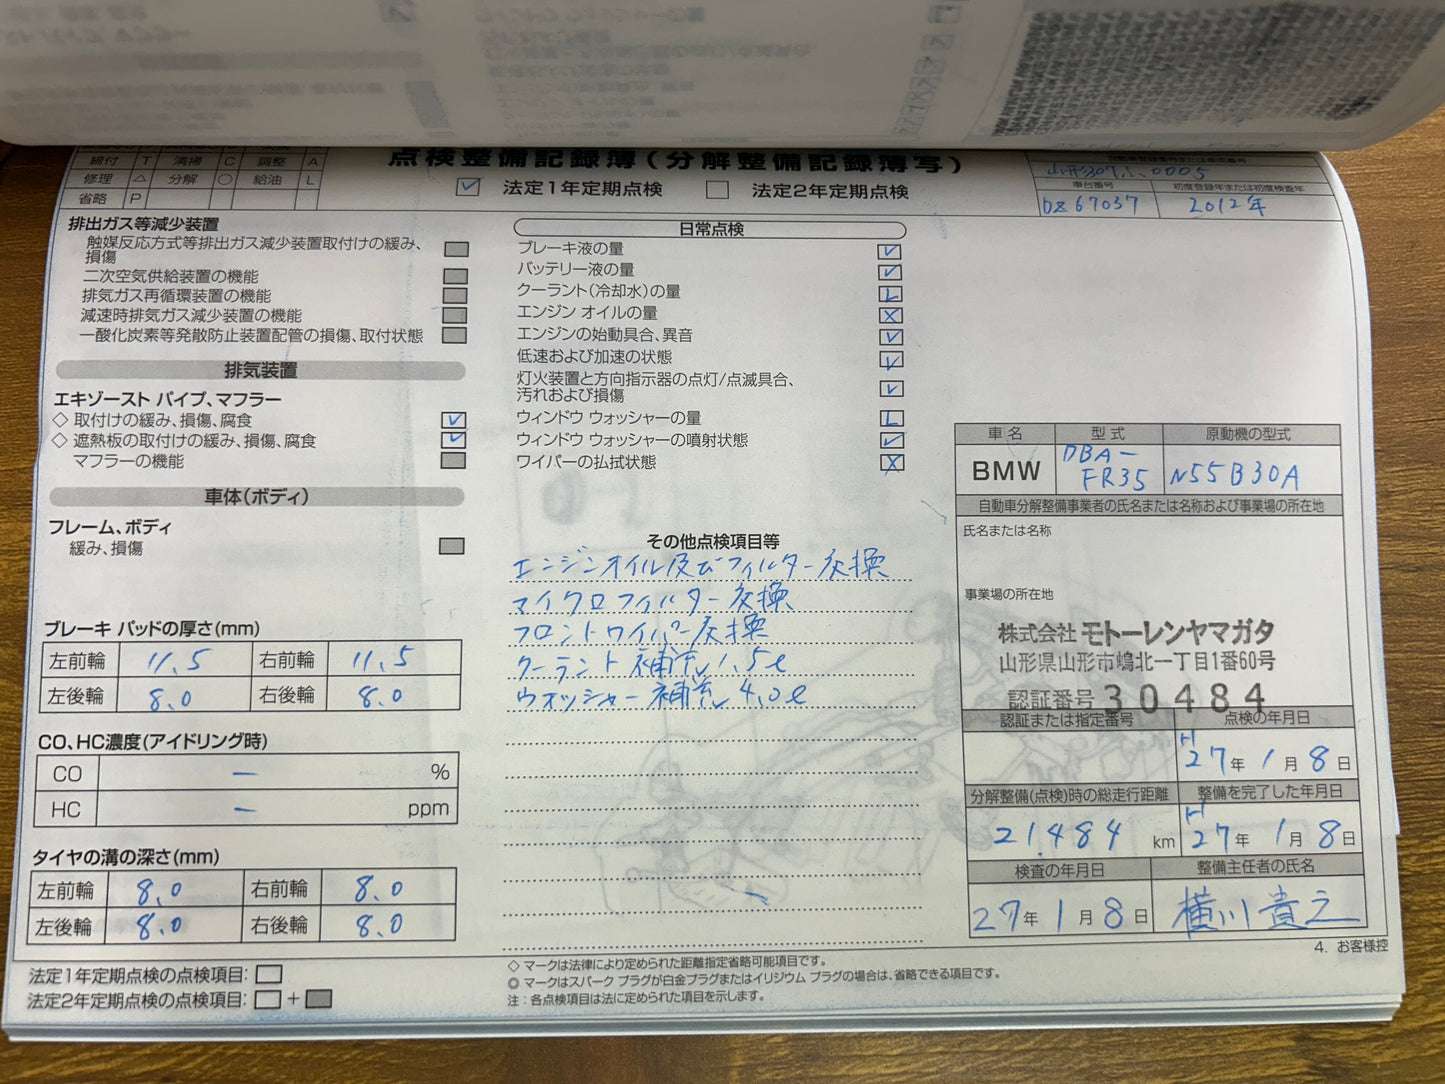 締付 T 清掃 C 調整 A
修理 △ 分解 ○ 給油 L
省略 P
点検整備記録簿(分解整備記録簿写)
☑ 法定1年定期点検 □ 法定2年定期点検
自動車登録番号または車両番号
車台番号 初度登録年または初度検査年
DZ67037 2012年
排出ガス等減少装置
触媒反応方式等排出ガス減少装置取付けの緩み、
損傷
二次空気供給装置の機能
排気ガス再循環装置の機能
減速時排気ガス減少装置の機能
一酸化炭素等発散防止装置配管の損傷、取付状態
排気装置
エキゾースト パイプ、マフラー
◇ 取付けの緩み、損傷、腐食 ✓
◇ 遮熱板の取付けの緩み、損傷、腐食 ✓
マフラーの機能
車体(ボディ)
フレーム、ボディ
緩み、損傷
ブレーキ パッドの厚さ(mm)
左前輪 11.5 右前輪 11.5
左後輪 8.0 右後輪 8.0
CO、HC濃度(アイドリング時)
CO — %
HC — ppm
タイヤの溝の深さ(mm)
左前輪 8.0 右前輪 8.0
左後輪 8.0 右後輪 8.0
法定1年定期点検の点検項目: □
法定2年定期点検の点検項目: □+■
日常点検
ブレーキ液の量 ✓
バッテリー液の量 ✓
クーラント(冷却水)の量 L
エンジン オイルの量 X
エンジンの始動具合、異音 ✓
低速および加速の状態 ✓
灯火装置と方向指示器の点灯/点滅具合、
汚れおよび損傷 ✓
ウィンドウ ウォッシャーの量 L
ウィンドウ ウォッシャーの噴射状態 ✓
ワイパーの払拭状態 X
その他点検項目等
エンジンオイル及びフィルター交換
マイクロフィルター交換
フロントワイパー交換
クーラント補充 1.5ℓ
ウォッシャー補充 4.0ℓ
◇ マークは法律により定められた距離指定省略可能項目です。
◎ マークはスパーク プラグが白金プラグまたはイリジウム プラグの場合は、省略できる項目です。
注：各点検項目は法に定められた項目を示します。
車名 型式 原動機の型式
BMW DBA-FR35 N55B30A
自動車分解整備事業者の氏名または名称および事業場の所在地
氏名または名称
事業場の所在地
株式会社 モトーレンヤマガタ
山形県山形市嶋北一丁目1番60号
認証番号 30484
認証または指定番号 点検の年月日
H27年1月8日
分解整備(点検)時の総走行距離 整備を完了した年月日
21,484 km H27年1月8日
検査の年月日 整備主任者の氏名
27年1月8日 横川貴之
4. お客様控